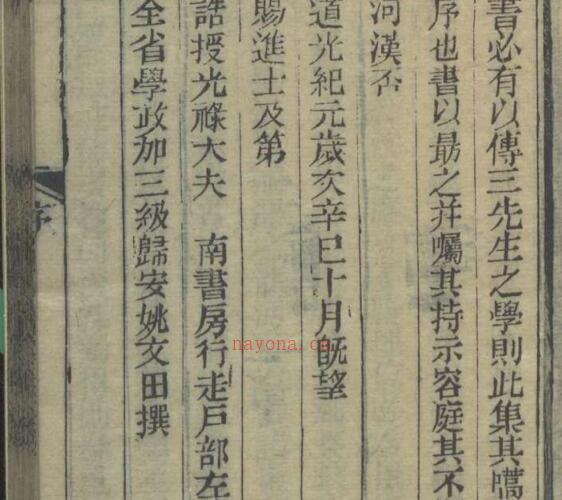 書必有以傳三先生之學則此集其嚆
序也書以勗之幷囑其持示容庭其不
河漢否
道光紀元歲次辛巳十月既望
賜進士及第
誥授光祿大夫 南書房行走戶部左
全省學政加三級歸安姚文田撰
序
nayona.cn